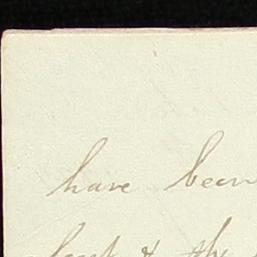 have been
& the